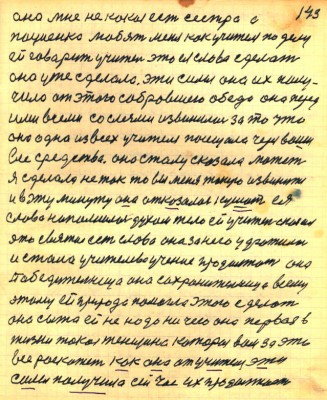 143
она мне не кокол ест сестра а
пациенка любят меня как учителя по делу
ей говорит учитель это ея слова сделат
она уже сделала. эти силы она их полу-
чила от этого собровшего обеда она перед
ими всеми со слезми извинилас за то что
она одна из всех учителя
все средства. она стала сказала может
я сделала не так то вы меня такую извините
и в эту минуту она отказалас кушат ея
слова наполнилис духом тело ей учитель сказал
это святыи ест слова она за него
и стала учителево учение продолжат она
победительница она сохранительница всему
этому ей природа помогла этого сделат
она сыта ей не надо ничего она первая в
жизни такая женщина которая вам за это
все роскажет как она от учителя эти
силы получила сей час их продолжает